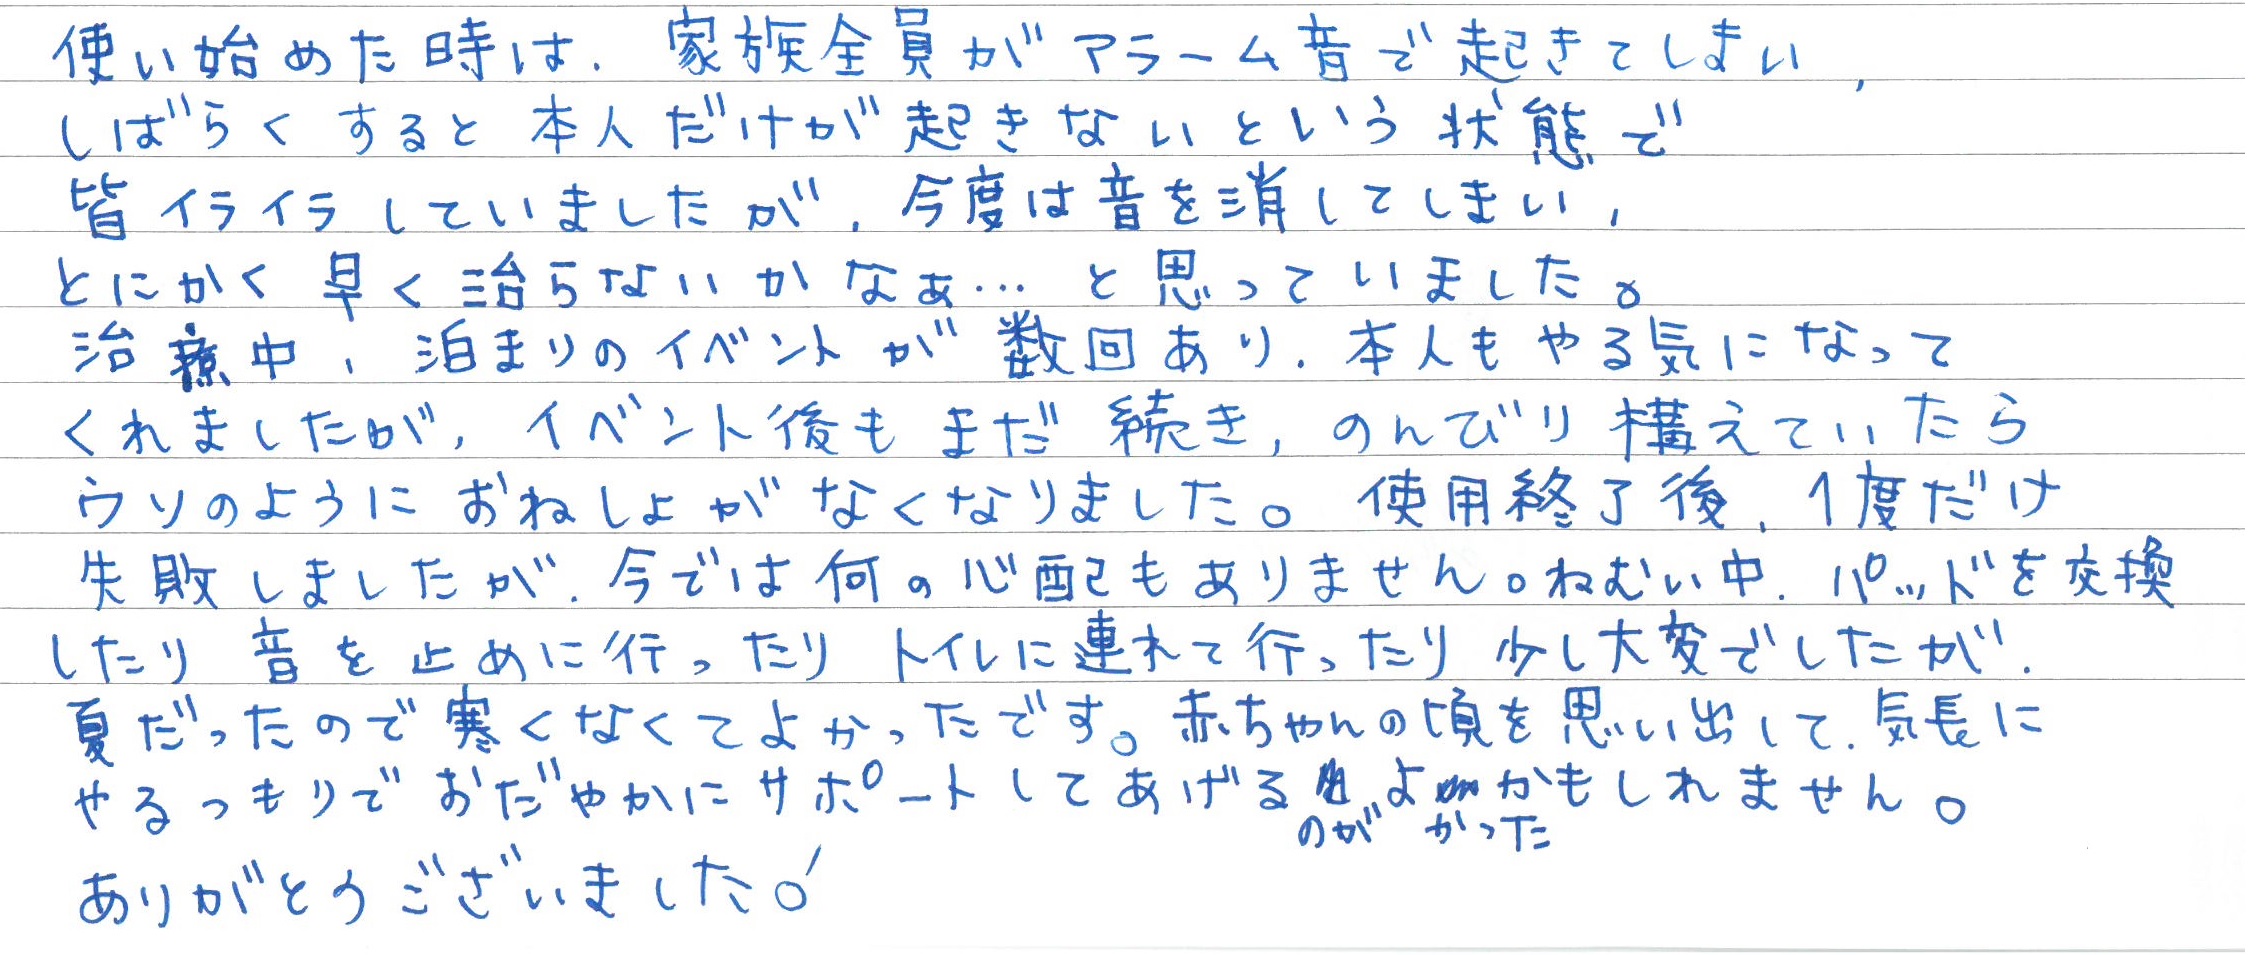 使い始めた時は、家族全員がアラーム音で起きてしまい、
しばらくすると本人だけが起きないという状態で
皆イライラしていましたが、今度は音を消してしまい、
とにかく早く治らないかなぁ…と思っていました。
治療中、泊まりのイベントが数回あり、本人もやる気になって
くれましたが、イベント後もまだ続き、のんびり構えていたら
ウソのようにおねしょがなくなりました。使用終了後、1度だけ
失敗しましたが、今では何の心配もありません。ねむい中、パッドを交換
したり音を止めに行ったりトイレに連れて行ったり少し大変でしたが、
夏だったので寒くなくてよかったです。赤ちゃんの頃を思い出して、気長に
やるつもりでおだやかにサポートしてあげるのがよかったかもしれません。
ありがとうございました。